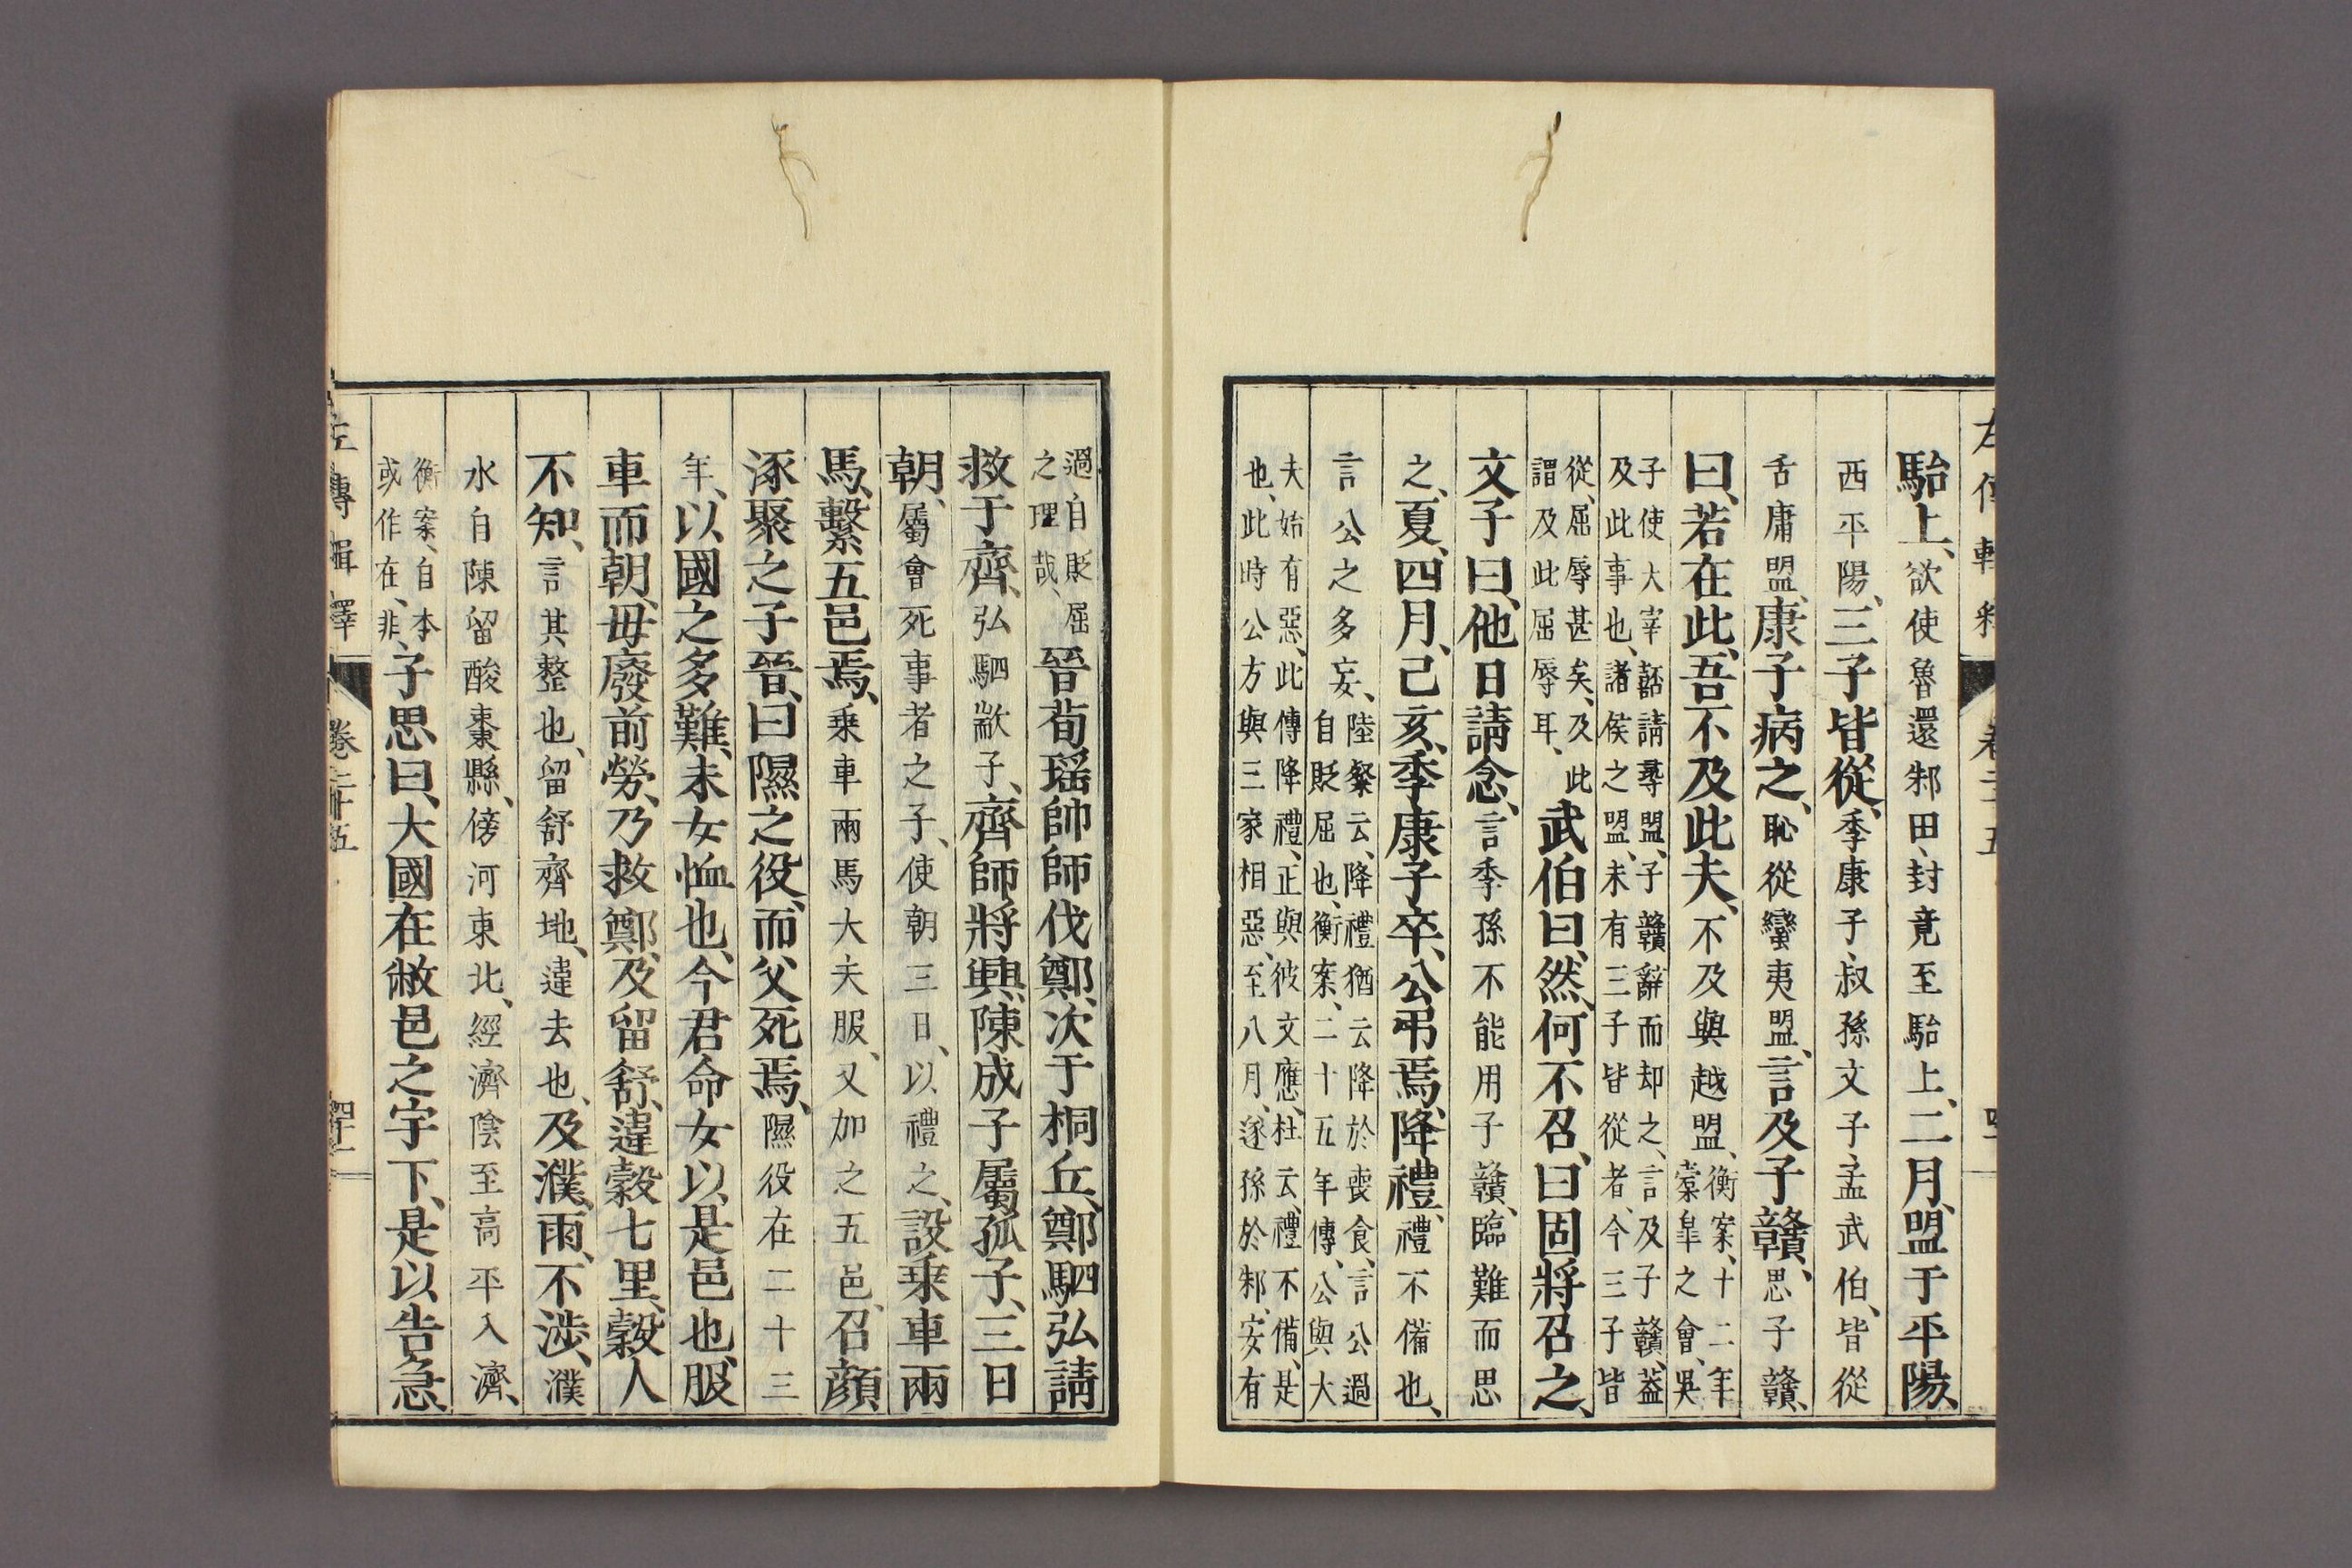 駘上、欲使魯還邾田、封竟至駘上、二月、盟于平陽、
西平陽、三子皆從、季康子、叔孫文子、孟武伯、皆從
舌庸盟、康子病之、恥從蠻夷盟、言及子贛、思子贛、
曰、若在此、吾不及此夫、不及與越盟、衡案、十二年
橐皐之會、吳
子使大宰嚭請尋盟、子贛辭而却之、言及子贛、蓋
及此事也、諸侯之盟、未有三子皆從者、今三子皆
從、屈辱甚矣、及此
謂及此屈辱耳、武伯曰、然、何不召、曰、固將召之、
文子曰、他日請念、言季孫不能用子贛、臨難而思
之、夏、四月、己亥、季康子卒、公弔焉、降禮、禮不備也、
言公之多妄、陸粲云、降禮猶云降於喪食、言公過
自貶屈也、衡案、二十五年傳、公與大
夫始有惡、此傳降禮、正與彼文應、杜云、禮不備、是
也、此時公方與三家相惡、至八月、遂孫於邾、安有
過自貶屈
之理哉、晉荀瑶帥師伐鄭、次于桐丘、鄭駟弘請
救于齊、弘駟歂子、齊師將興、陳成子屬孤子、三日
朝、屬會死事者之子、使朝三日、以禮之、設乘車兩
馬、繫五邑焉、乘車兩馬大夫服、又加之五邑、召顏
涿聚之子晉、曰、隰之役、而父死焉、隰役在二十三
年、以國之多難、未女恤也、今君命女以是邑也、服
車而朝、毋廢前勞、乃救鄭、及留舒、違穀七里、穀人
不知、言其整也、留舒齊地、違去也、及濮、雨、不涉、濮
水自陳留酸棗縣、傍河東北、經濟陰至高平入濟、
衡案、自本
或作在、非、子思曰、大國在敝邑之宇下、是以告急
左傳輯釋 卷二十五